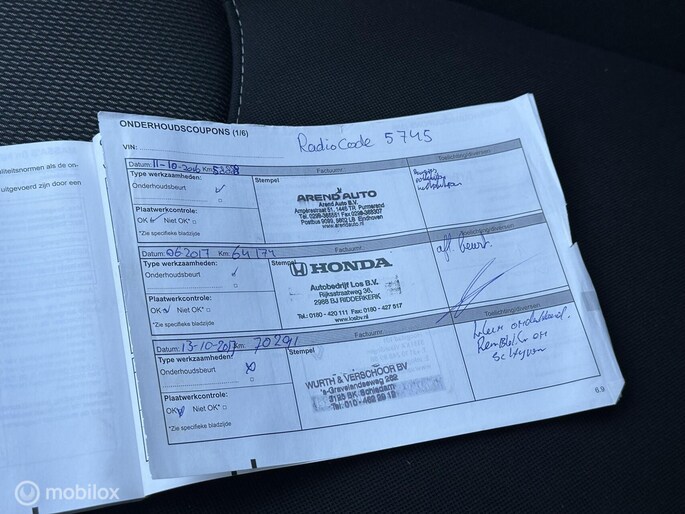 aliteitsnormen als de on-
uitgevoerd zijn door een
ONDERHOUDSCOUPONS (1/6)
RadioCode 5745
VIN:
Datum: 11-10-2016 Km:
Factuurnr.
Toelichting/diversen
Type werkzaamheden:
Onderhoudsbeurt ✓
Plaatwerkcontrole:
OK ✓ Niet OK* □
*Zie specifieke bladzijde
Stempel
AREND AUTO
Arend Auto B.V.
Ampèrestraat 51, 1446 TR Purmerend
Tel. 0299-368551 Fax 0299-368307
Postbus 9089, 5602 LB Eindhoven
www.arendauto.nl
Datum: 06 2017 Km: 64 177
Factuurnr.
Toelichting/diversen
Type werkzaamheden:
Onderhoudsbeurt ✓
Plaatwerkcontrole:
OK ✓ Niet OK* □
*Zie specifieke bladzijde
Stempel
HONDA
Autobedrijf Los B.V.
Rijksstraatweg 36,
2988 BJ RIDDERKERK
Tel.: 0180 - 420 111 Fax: 0180 - 427 917
www.losbv.nl
afl. beurt.
Datum: 13-10-2017 Km: 70291
Factuurnr.
Toelichting/diversen
Type werkzaamheden:
Onderhoudsbeurt
Plaatwerkcontrole:
OK Niet OK* □
*Zie specifieke bladzijde
Stempel
WURTH & VERSCHOOR BV
's-Gravelandseweg 282
3125 BK Schiedam
Tel: 010 - 462 29 12
Klein onderhoud.
Remblokken en
schijven
6.9
mobilox